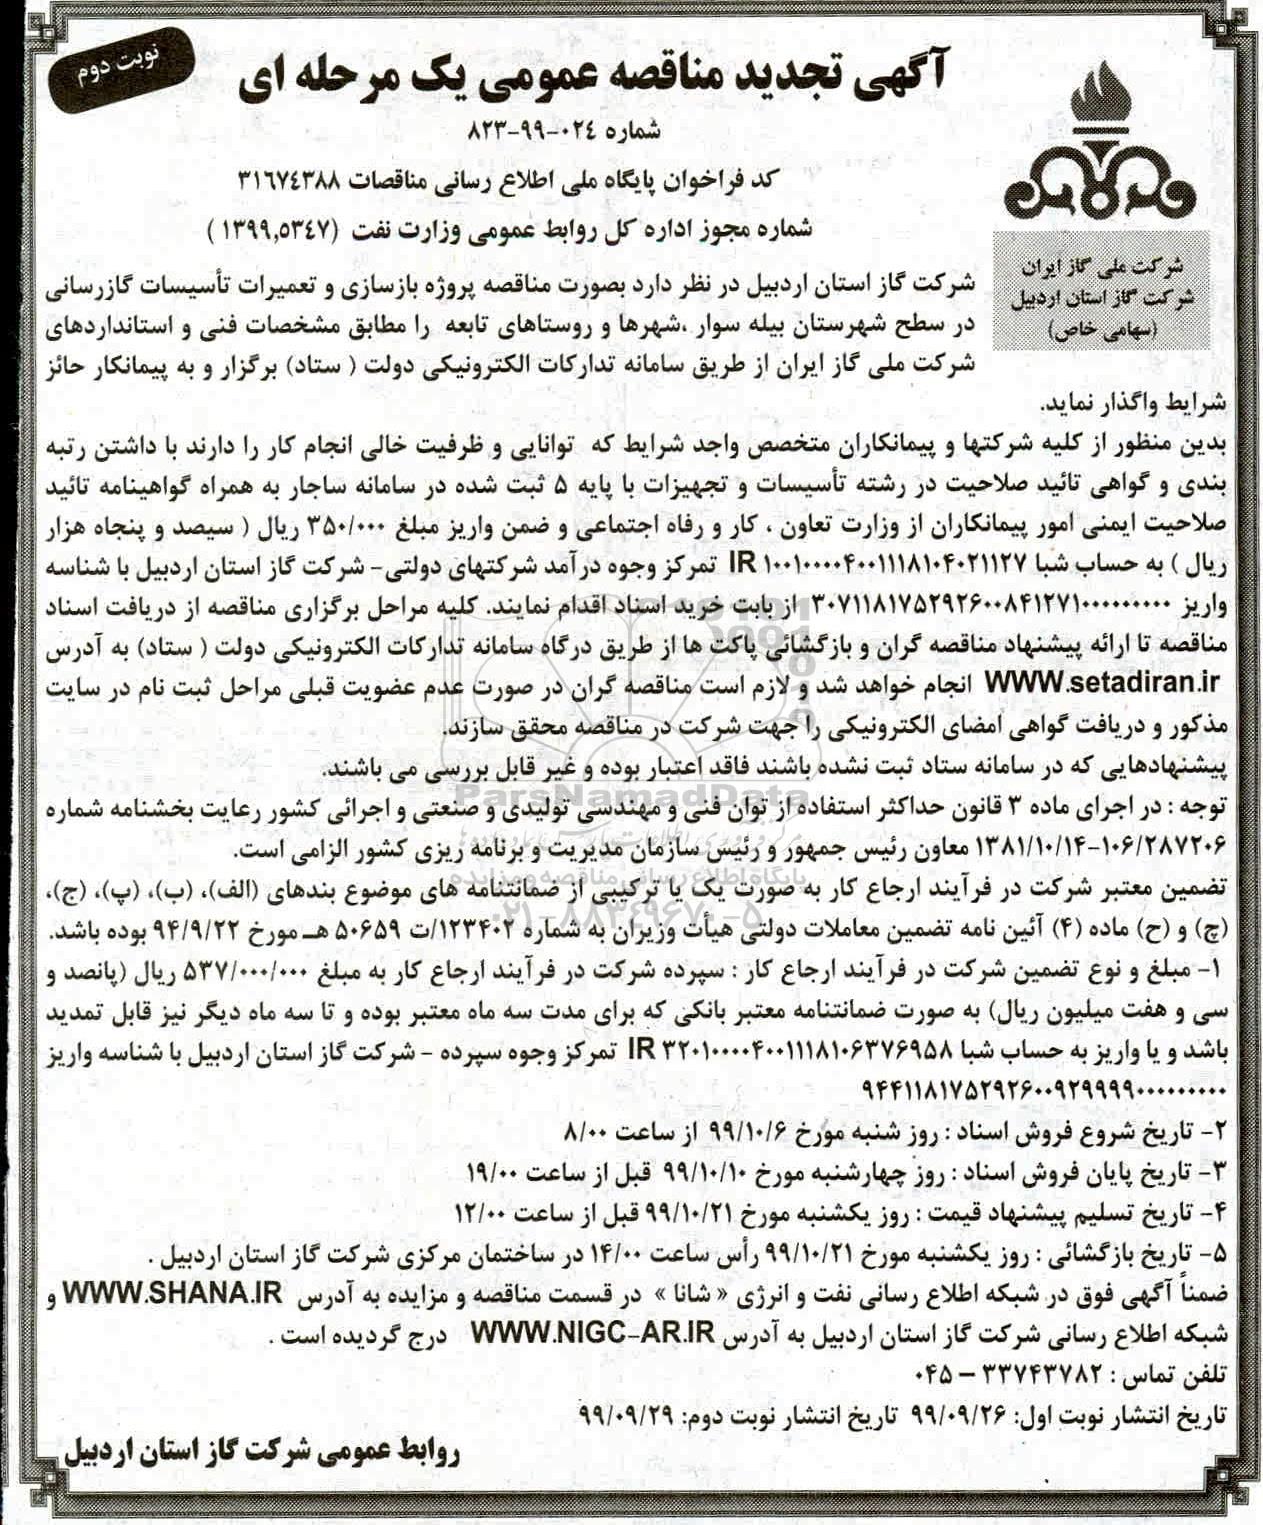 نوبت دوم
آگهی تجدید مناقصه عمومی یک مرحله ای
شماره ۰۲۴-۹۹-۸۲۳
کد فراخوان پایگاه ملی اطلاع رسانی مناقصات ۳۱۶۷۴۳۸۸
شماره مجوز اداره کل روابط عمومی وزارت نفت (۱۳۹۹,۵۳۴۷ )
شرکت ملی گاز ایران
شرکت گاز استان اردبیل
(سهامی خاص)
شرکت گاز استان اردبیل در نظر دارد بصورت مناقصه پروژه بازسازی و تعمیرات تأسیسات گازرسانی
در سطح شهرستان بیله سوار ،شهرها و روستاهای تابعه را مطابق مشخصات فنی و استانداردهای
شرکت ملی گاز ایران از طریق سامانه تدارکات الکترونیکی دولت ( ستاد) برگزار و به پیمانکار حائز
شرایط واگذار نماید.
بدین منظور از کلیه شرکتها و پیمانکاران متخصص واجد شرایط که توانایی و ظرفیت خالی انجام کار را دارند با داشتن رتبه
بندی و گواهی تائید صلاحیت در رشته تأسیسات و تجهیزات با پایه ۵ ثبت شده در سامانه ساجار به همراه گواهینامه تائید
صلاحیت ایمنی امور پیمانکاران از وزارت تعاون ، کار و رفاه اجتماعی و ضمن واریز مبلغ ۳۵۰/۰۰۰ ریال ( سیصد و پنجاه هزار
ریال ) به حساب شبا IR ۱۰۰۱۰۰۰۰۴۰۰۱۱۱۸۱۰۴۰۲۱۱۲۷ تمرکز وجوه درآمد شرکتهای دولتی- شرکت گاز استان اردبیل با شناسه
واریز ۳۰۷۱۱۸۱۷۵۲۹۲۶۰۰۸۴۱۲۷۱۰۰۰۰۰۰۰۰۰۰ از بابت خرید اسناد اقدام نمایند. کلیه مراحل برگزاری مناقصه از دریافت اسناد
مناقصه تا ارائه پیشنهاد مناقصه گران و بازگشائی پاکت ها از طریق درگاه سامانه تدارکات الکترونیکی دولت ( ستاد) به آدرس
WWW.setadiran.ir انجام خواهد شد و لازم است مناقصه گران در صورت عدم عضویت قبلی مراحل ثبت نام در سایت
مذکور و دریافت گواهی امضای الکترونیکی را جهت شرکت در مناقصه محقق سازند.
پیشنهادهایی که در سامانه ستاد ثبت نشده باشند فاقد اعتبار بوده و غیر قابل بررسی می باشند.
ParsNamadData
توجه : در اجرای ماده ۳ قانون حداکثر استفاده از توان فنی و مهندسی تولیدی و صنعتی و اجرائی کشور رعایت بخشنامه شماره
۱۰۶/۲۸۷۲۰۶-۱۳۸۱/۱۰/۱۴ معاون رئیس جمهور و رئیس سازمان مدیریت و برنامه ریزی کشور الزامی است.
پایگاه اطلاع رسانی مناقصه و مزایده
تضمین معتبر شرکت در فرآیند ارجاع کار به صورت یک یا ترکیبی از ضمانتنامه های موضوع بندهای (الف)، (ب)، (پ)، (ج)،
۰۲۱-۸۸۳۴۹۶۷۰-۵
(چ) و (ح) ماده (۴) آئین نامه تضمین معاملات دولتی هیأت وزیران به شماره ۱۲۳۴۰۲/ت ۵۰۶۵۹ هـ مورخ ۹۴/۹/۲۲ بوده باشد.
۱- مبلغ و نوع تضمین شرکت در فرآیند ارجاع کار : سپرده شرکت در فرآیند ارجاع کار به مبلغ ۵۳۷/۰۰۰/۰۰۰ ریال (پانصد و
سی و هفت میلیون ریال) به صورت ضمانتنامه معتبر بانکی که برای مدت سه ماه معتبر بوده و تا سه ماه دیگر نیز قابل تمدید
باشد و یا واریز به حساب شبا IR ۳۲۰۱۰۰۰۰۴۰۰۱۱۱۸۱۰۶۳۷۶۹۵۸ تمرکز وجوه سپرده - شرکت گاز استان اردبیل با شناسه واریز
۹۴۴۱۱۸۱۷۵۲۹۲۶۰۰۹۲۹۹۹۹۰۰۰۰۰۰۰۰۰۰
۲- تاریخ شروع فروش اسناد : روز شنبه مورخ ۹۹/۱۰/۶ از ساعت ۸/۰۰
۳- تاریخ پایان فروش اسناد : روز چهارشنبه مورخ ۹۹/۱۰/۱۰ قبل از ساعت ۱۹/۰۰
۴- تاریخ تسلیم پیشنهاد قیمت : روز یکشنبه مورخ ۹۹/۱۰/۲۱ قبل از ساعت ۱۲/۰۰
۵- تاریخ بازگشائی : روز یکشنبه مورخ ۹۹/۱۰/۲۱ رأس ساعت ۱۴/۰۰ در ساختمان مرکزی شرکت گاز استان اردبیل .
ضمناً آگهی فوق در شبکه اطلاع رسانی نفت و انرژی « شانا » در قسمت مناقصه و مزایده به آدرس WWW.SHANA.IR و
شبکه اطلاع رسانی شرکت گاز استان اردبیل به آدرس WWW.NIGC-AR.IR درج گردیده است .
تلفن تماس : ۳۳۷۴۳۷۸۲ – ۰۴۵
تاریخ انتشار نوبت اول: ۹۹/۰۹/۲۶ تاریخ انتشار نوبت دوم: ۹۹/۰۹/۲۹
روابط عمومی شرکت گاز استان اردبیل